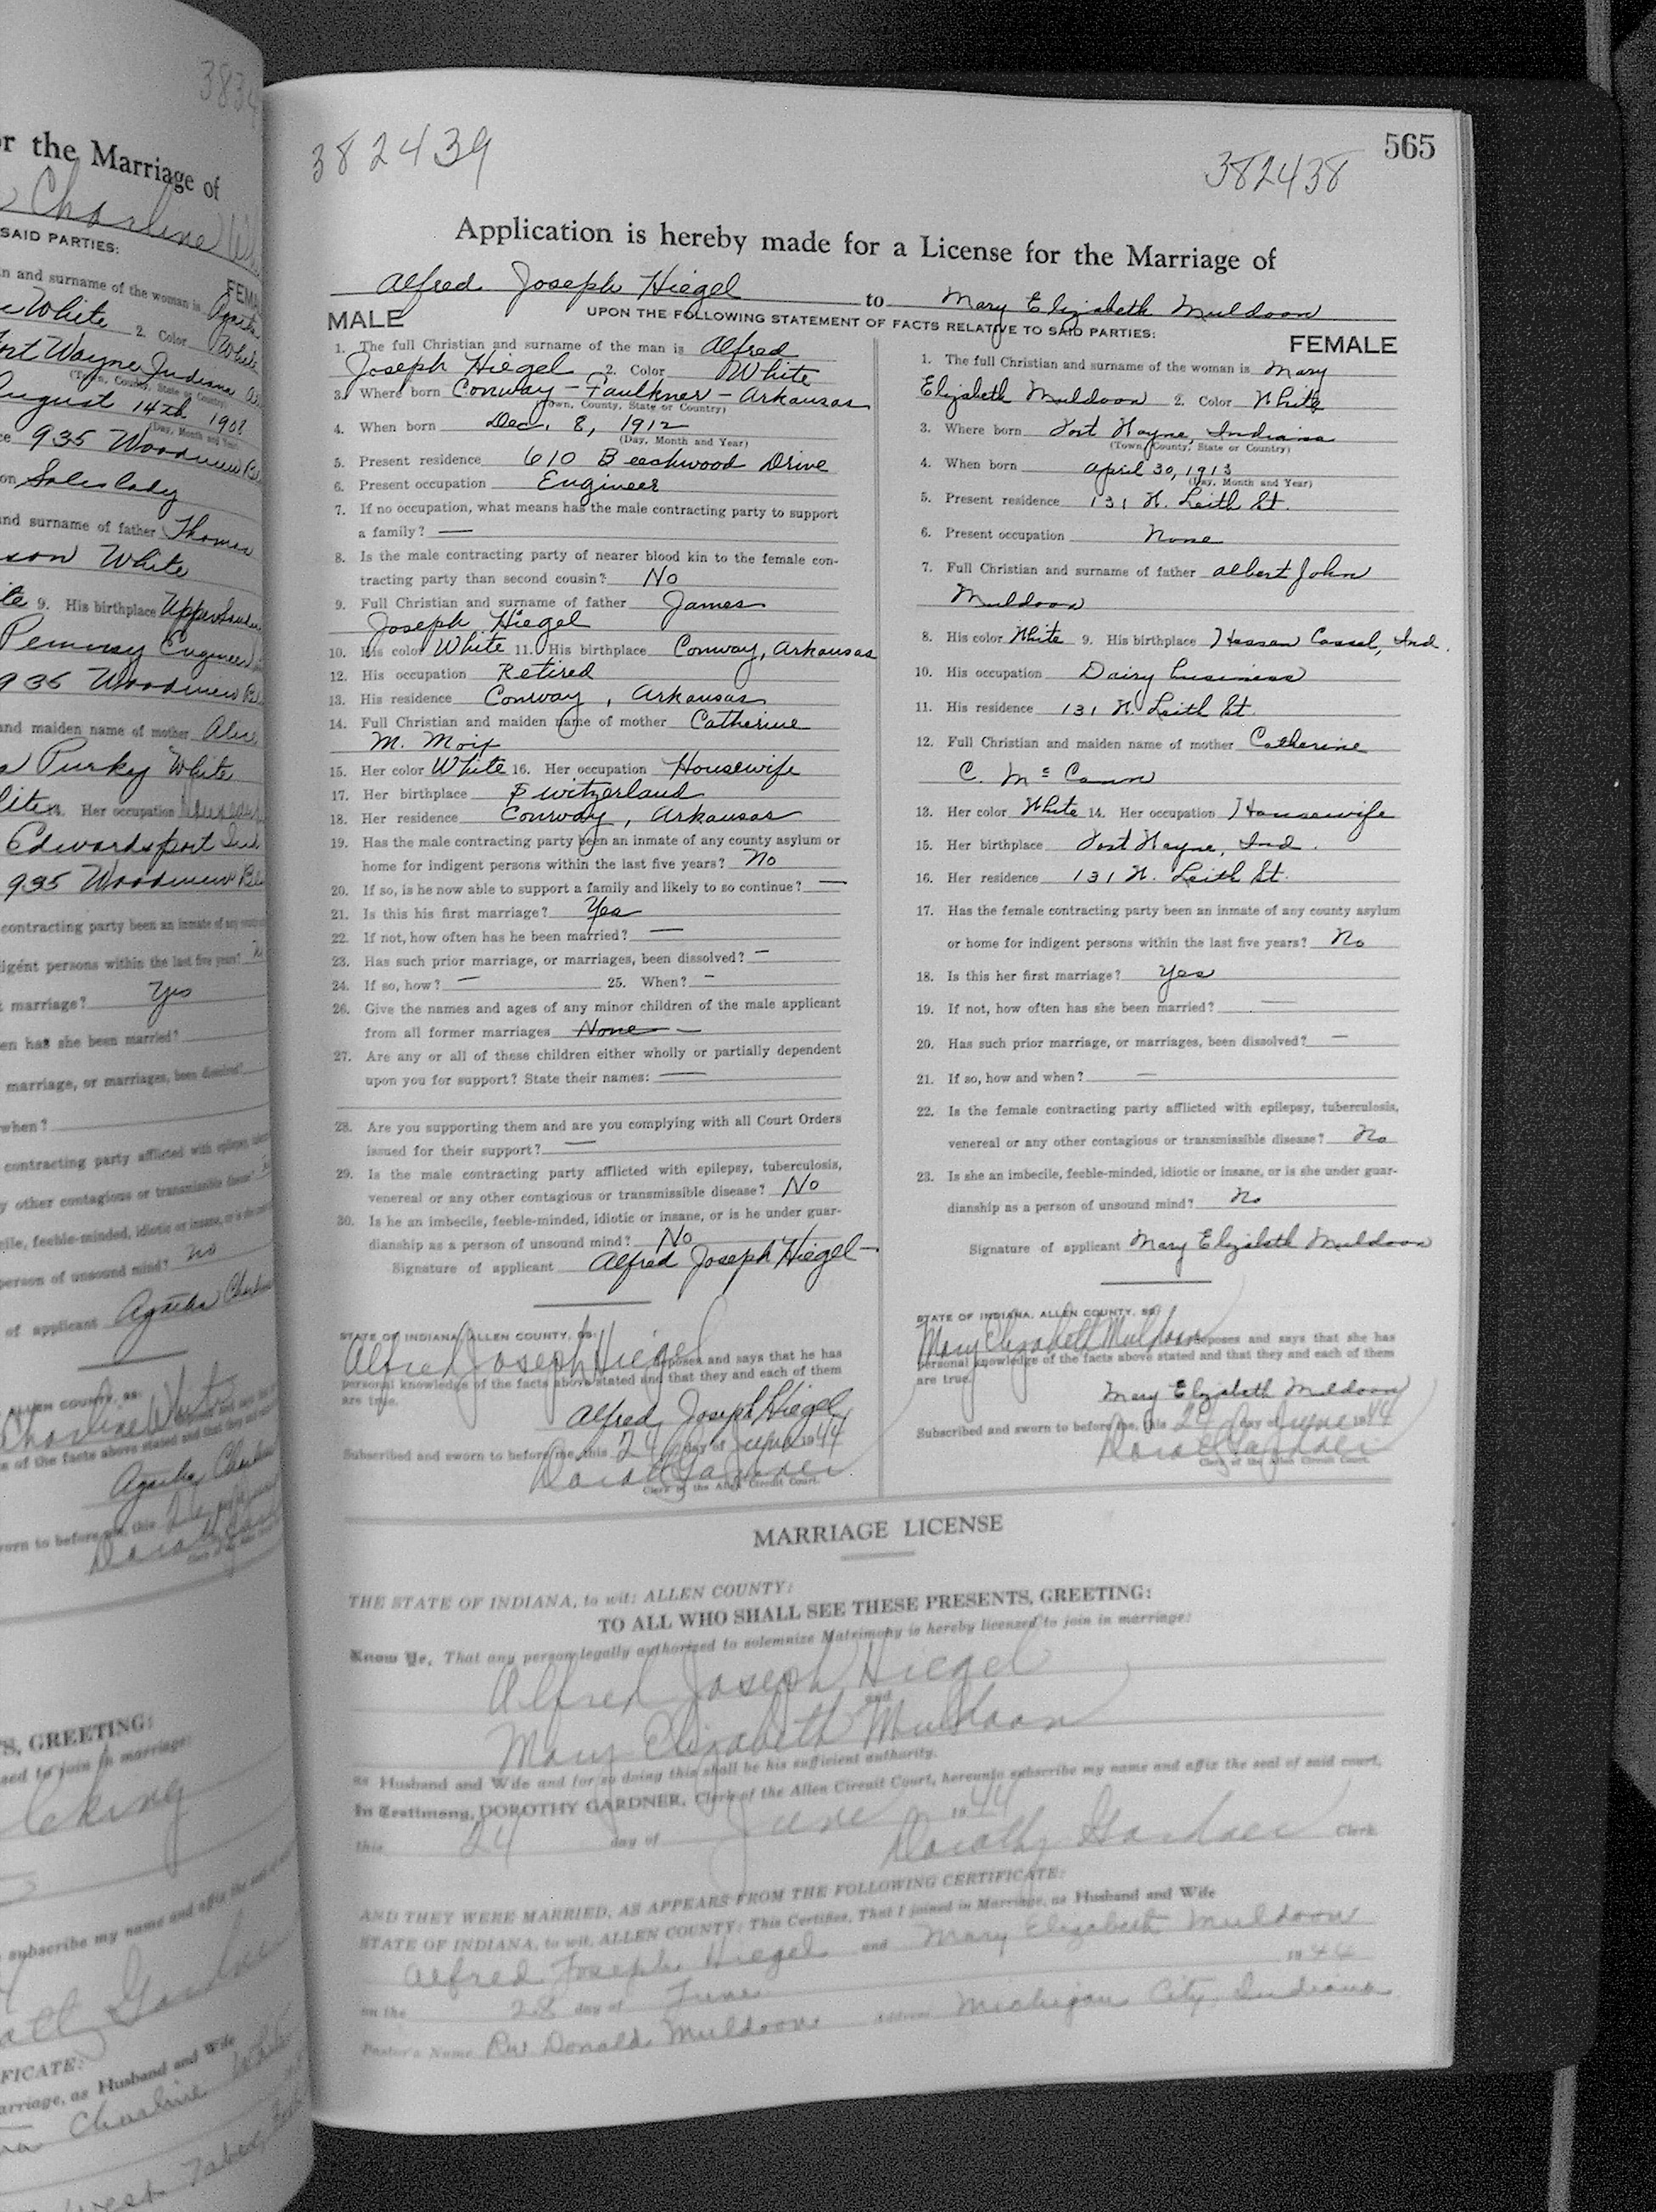 3834
or the Marriage of
Charline
SAID PARTIES:
FEMA
n and surname of the woman is
White 2. Color White
Fort Wayne Indiana
(Town, County, State or Country)
August 14th 1908
(Day, Month and Year
935 Woodview
on Saleslady
and surname of father Thomas
White
9. His birthplace Upper
Engineer
935 Woodview
and maiden name of mother
Purky White
Her occupation
Edwardsport Ind.
935 Woodview
contracting party been an inmate of any
digent persons within the last five years?
t marriage? Yes
en has she been married?
marriage, or marriages, been dissolved?
when?
contracting party afflicted with
y other contagious or transmissible
cile, feeble-minded, idiotic or insane, or is
person of unsound mind? no
of applicant Agatha
ALLEN COUNTY, SS:
Charline White
of the facts above stated and that they and
Agatha
orn to before me, this
S, GREETING:
sed to join in marriage:
subscribe my name and affix the
FICATE:
arriage, as Husband and Wife
Charline White
565
382439
382438
Application is hereby made for a License for the Marriage of
Alfred Joseph Hiegel to Mary Elizabeth Muldoon
UPON THE FOLLOWING STATEMENT OF FACTS RELATIVE TO SAID PARTIES:
MALE
1. The full Christian and surname of the man is Alfred
Joseph Hiegel 2. Color White
3. Where born Conway - Faulkner - Arkansas
(Town, County, State or Country)
4. When born Dec. 8, 1912
(Day, Month and Year)
5. Present residence 610 Beechwood Drive
6. Present occupation Engineer
7. If no occupation, what means has the male contracting party to support
a family? —
8. Is the male contracting party of nearer blood kin to the female con-
tracting party than second cousin? No
9. Full Christian and surname of father James
Joseph Hiegel
10. His color White 11. His birthplace Conway, Arkansas
12. His occupation Retired
13. His residence Conway, Arkansas
14. Full Christian and maiden name of mother Catherine
M. Moix
15. Her color White 16. Her occupation Housewife
17. Her birthplace Switzerland
18. Her residence Conway, Arkansas
19. Has the male contracting party been an inmate of any county asylum or
home for indigent persons within the last five years? No
20. If so, is he now able to support a family and likely to so continue? —
21. Is this his first marriage? Yes
22. If not, how often has he been married? —
23. Has such prior marriage, or marriages, been dissolved? —
24. If so, how? — 25. When? —
26. Give the names and ages of any minor children of the male applicant
from all former marriages None —
27. Are any or all of these children either wholly or partially dependent
upon you for support? State their names: —
28. Are you supporting them and are you complying with all Court Orders
issued for their support? —
29. Is the male contracting party afflicted with epilepsy, tuberculosis,
venereal or any other contagious or transmissible disease? No
30. Is he an imbecile, feeble-minded, idiotic or insane, or is he under guar-
dianship as a person of unsound mind? No
Signature of applicant Alfred Joseph Hiegel
STATE OF INDIANA, ALLEN COUNTY, SS:
Alfred Joseph Hiegel deposes and says that he has
personal knowledge of the facts above stated and that they and each of them
are true.
Alfred Joseph Hiegel
Subscribed and sworn to before me, this 24 day of June 1944
Dorothy Gardner
Clerk of the Allen Circuit Court.
FEMALE
1. The full Christian and surname of the woman is Mary
Elizabeth Muldoon 2. Color White
3. Where born Fort Wayne, Indiana
(Town, County, State or Country)
4. When born April 30, 1913
(Day, Month and Year)
5. Present residence 131 W. Leith St.
6. Present occupation None
7. Full Christian and surname of father Albert John
Muldoon
8. His color White 9. His birthplace Hessen Cassel, Ind.
10. His occupation Dairy business
11. His residence 131 W. Leith St.
12. Full Christian and maiden name of mother Catherine
C. McCann
13. Her color White 14. Her occupation Housewife
15. Her birthplace Fort Wayne, Ind.
16. Her residence 131 W. Leith St.
17. Has the female contracting party been an inmate of any county asylum
or home for indigent persons within the last five years? No
18. Is this her first marriage? Yes
19. If not, how often has she been married? —
20. Has such prior marriage, or marriages, been dissolved? —
21. If so, how and when? —
22. Is the female contracting party afflicted with epilepsy, tuberculosis,
venereal or any other contagious or transmissible disease? No
23. Is she an imbecile, feeble-minded, idiotic or insane, or is she under guar-
dianship as a person of unsound mind? No
Signature of applicant Mary Elizabeth Muldoon
STATE OF INDIANA, ALLEN COUNTY, SS:
Mary Elizabeth Muldoon deposes and says that she has
personal knowledge of the facts above stated and that they and each of them
are true.
Mary Elizabeth Muldoon
Subscribed and sworn to before me, this 24 day of June 1944
Dorothy Gardner
Clerk of the Allen Circuit Court.
MARRIAGE LICENSE
THE STATE OF INDIANA, to wit: ALLEN COUNTY:
TO ALL WHO SHALL SEE THESE PRESENTS, GREETING:
Know Ye, That any person legally authorized to solemnize Matrimony is hereby licensed to join in marriage:
Alfred Joseph Hiegel
and
Mary Elizabeth Muldoon
as Husband and Wife and for so doing this shall be his sufficient authority.
In Testimony, DOROTHY GARDNER, Clerk of the Allen Circuit Court, hereunto subscribe my name and affix the seal of said court,
this 24 day of June 1944
Dorothy Gardner Clerk
AND THEY WERE MARRIED, AS APPEARS FROM THE FOLLOWING CERTIFICATE:
STATE OF INDIANA, to wit, ALLEN COUNTY: This Certifies, That I joined in Marriage, as Husband and Wife
Alfred Joseph Hiegel and Mary Elizabeth Muldoon
on the 28 day of June 1944
Pastor's Name Rev Donald Muldoon Address Michigan City, Indiana